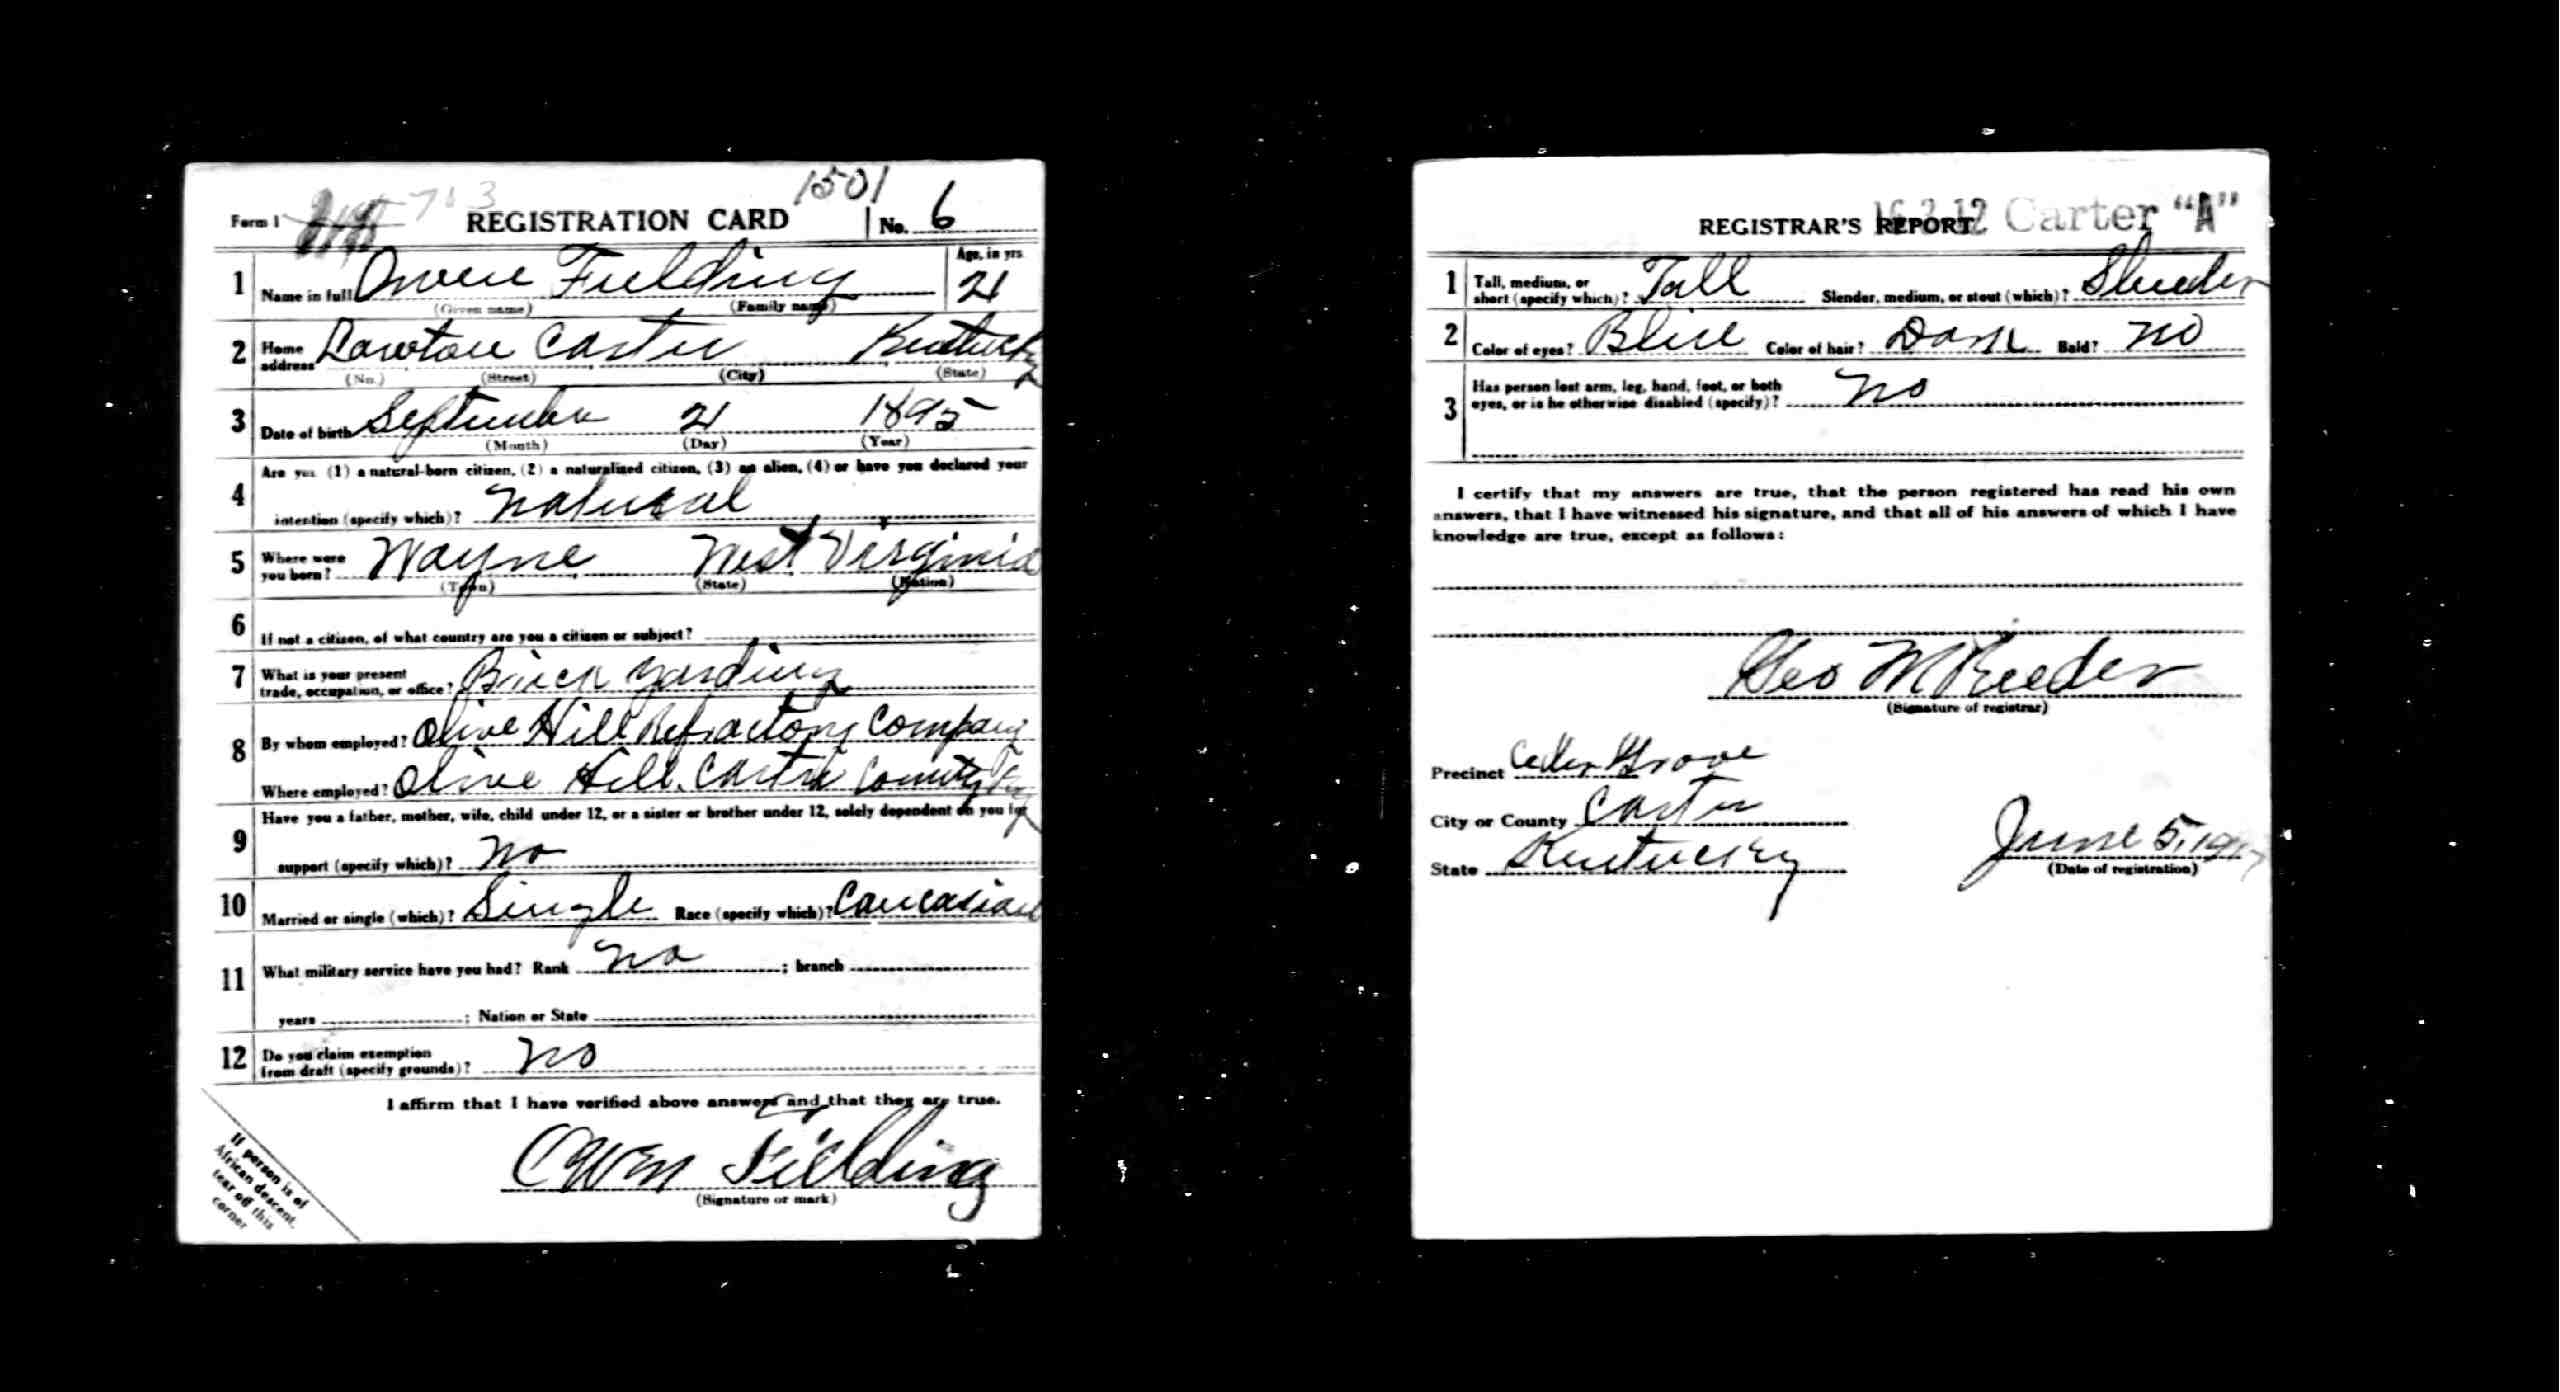 1501
Form 1 713 REGISTRATION CARD No. 6
Age, in yrs.
1 Name in full Owen Fielding 21
(Given name) (Family name)
2 Home address Lawton Carter Kentucky
(No.) (Street) (City) (State)
3 Date of birth September 21 1895
(Month) (Day) (Year)
Are you (1) a natural-born citizen, (2) a naturalized citizen, (3) an alien, (4) or have you declared your
4 intention (specify which)? Natural
5 Where were you born? Wayne West Virginia
(Town) (State) (Nation)
6 If not a citizen, of what country are you a citizen or subject?
7 What is your present trade, occupation, or office? Brick yarding
8 By whom employed? Olive Hill Refractory Company
Where employed? Olive Hill, Carter County Ky
Have you a father, mother, wife, child under 12, or a sister or brother under 12, solely dependent on you for
9 support (specify which)? No
10 Married or single (which)? Single Race (specify which)? Caucasian
11 What military service have you had? Rank No ; branch
years ; Nation or State
12 Do you claim exemption from draft (specify grounds)? No
I affirm that I have verified above answers and that they are true.
Owen Fielding
(Signature or mark)
If person is of
African descent,
tear off this
corner
REGISTRAR'S REPORT 16 2 12 Carter "A"
1 Tall, medium, or short (specify which)? Tall Slender, medium, or stout (which)? Slender
2 Color of eyes? Blue Color of hair? Dark Bald? No
3 Has person lost arm, leg, hand, foot, or both
eyes, or is he otherwise disabled (specify)? No
I certify that my answers are true, that the person registered has read his own
answers, that I have witnessed his signature, and that all of his answers of which I have
knowledge are true, except as follows:
Geo M Reeder
(Signature of registrar)
Precinct Grove
City or County Carter
State Kentucky June 5, 1917
(Date of registration)